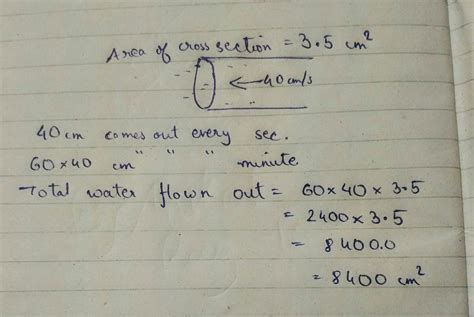 Area of cross section = 3.5 cm²
40 cm/s
40 cm comes out every sec.
60×40 cm " " " minute
Total water flown out = 60×40×3.5
= 2400×3.5
= 8400.0
= 8400 cm²